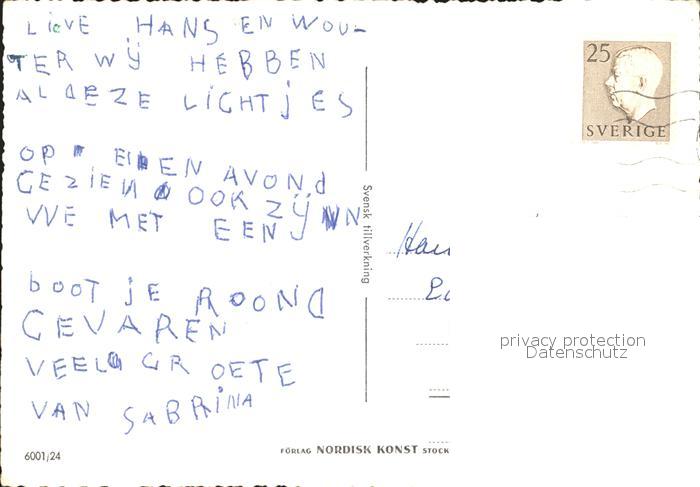 LiEVE HANS EN WOU-
TER Wÿ HEBBEN
AL dEZE LiCHTjES
OP EEN AVOND
GEZIEN OOK ZijN
WE MET EEN
booT jE ROOND
GEVAREN
VEEL GROETE
VAN SABRiNA
6001/24
Svensk tillverkning
FÖRLAG NORDISK KONST STOCK
25
SVERIGE
privacy protection
Datenschutz